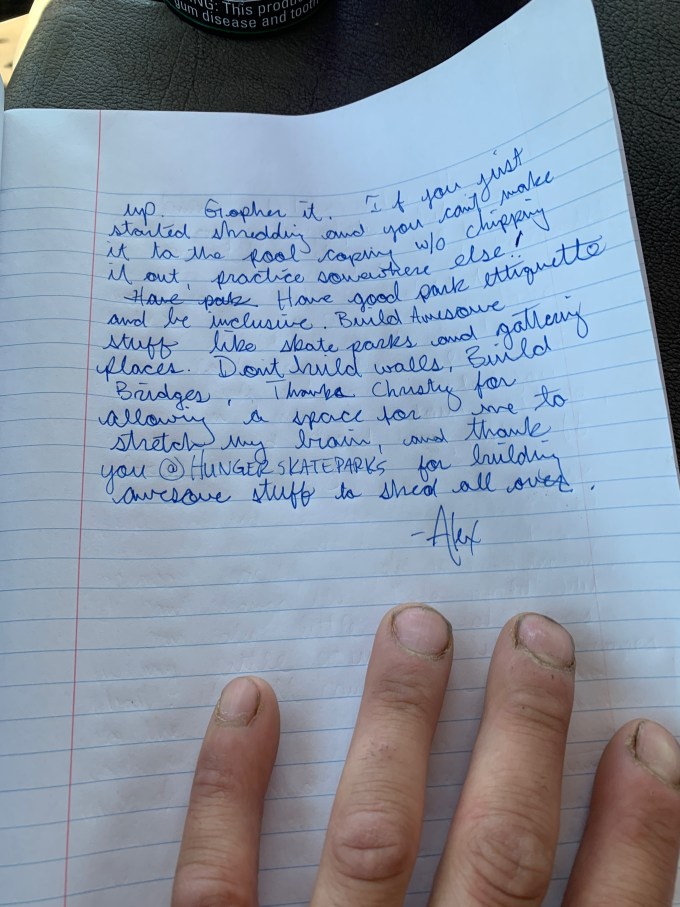 NG: This produ
gum disease and tooth
up. Gopher it. If you just
started shredding and you can't make
it to the pool coping w/o chipping
it out, practice somewhere else!
Have park Have good park ettiquette
and be inclusive. Build Awesome
stuff like skate parks and gathering
places. Dont build walls, Build
Bridges, Thanks Christy for
allowing a space for me to
stretch my brain, and thank
you @HUNGERSKATEPARKS for building
awesome stuff to shred all over.
-Alex